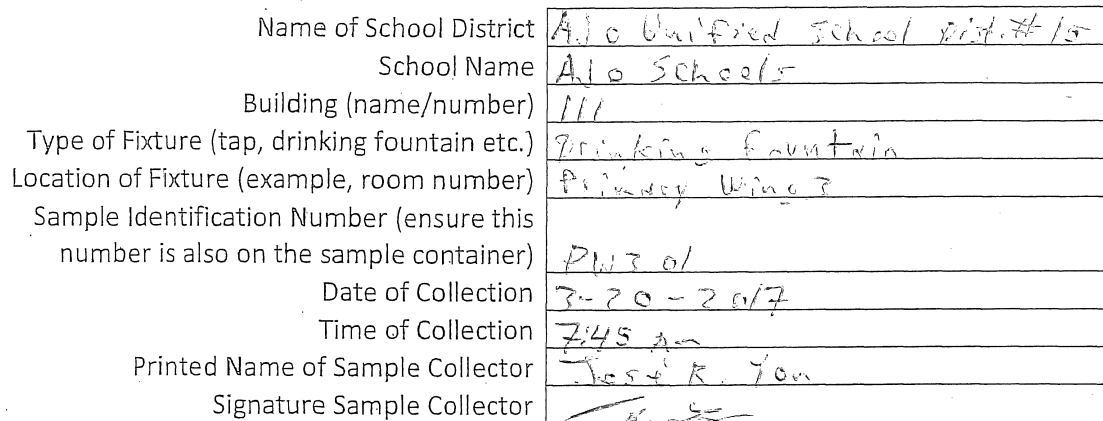 Name of School District Ajo Unified School Dist. # 15
School Name Ajo Schools
Building (name/number) 111
Type of Fixture (tap, drinking fountain etc.) Drinking Fountain
Location of Fixture (example, room number) Primary Wing 3
Sample Identification Number (ensure this
number is also on the sample container) PW3 01
Date of Collection 3-20-2017
Time of Collection 7:45 am
Printed Name of Sample Collector R.
Signature Sample Collector